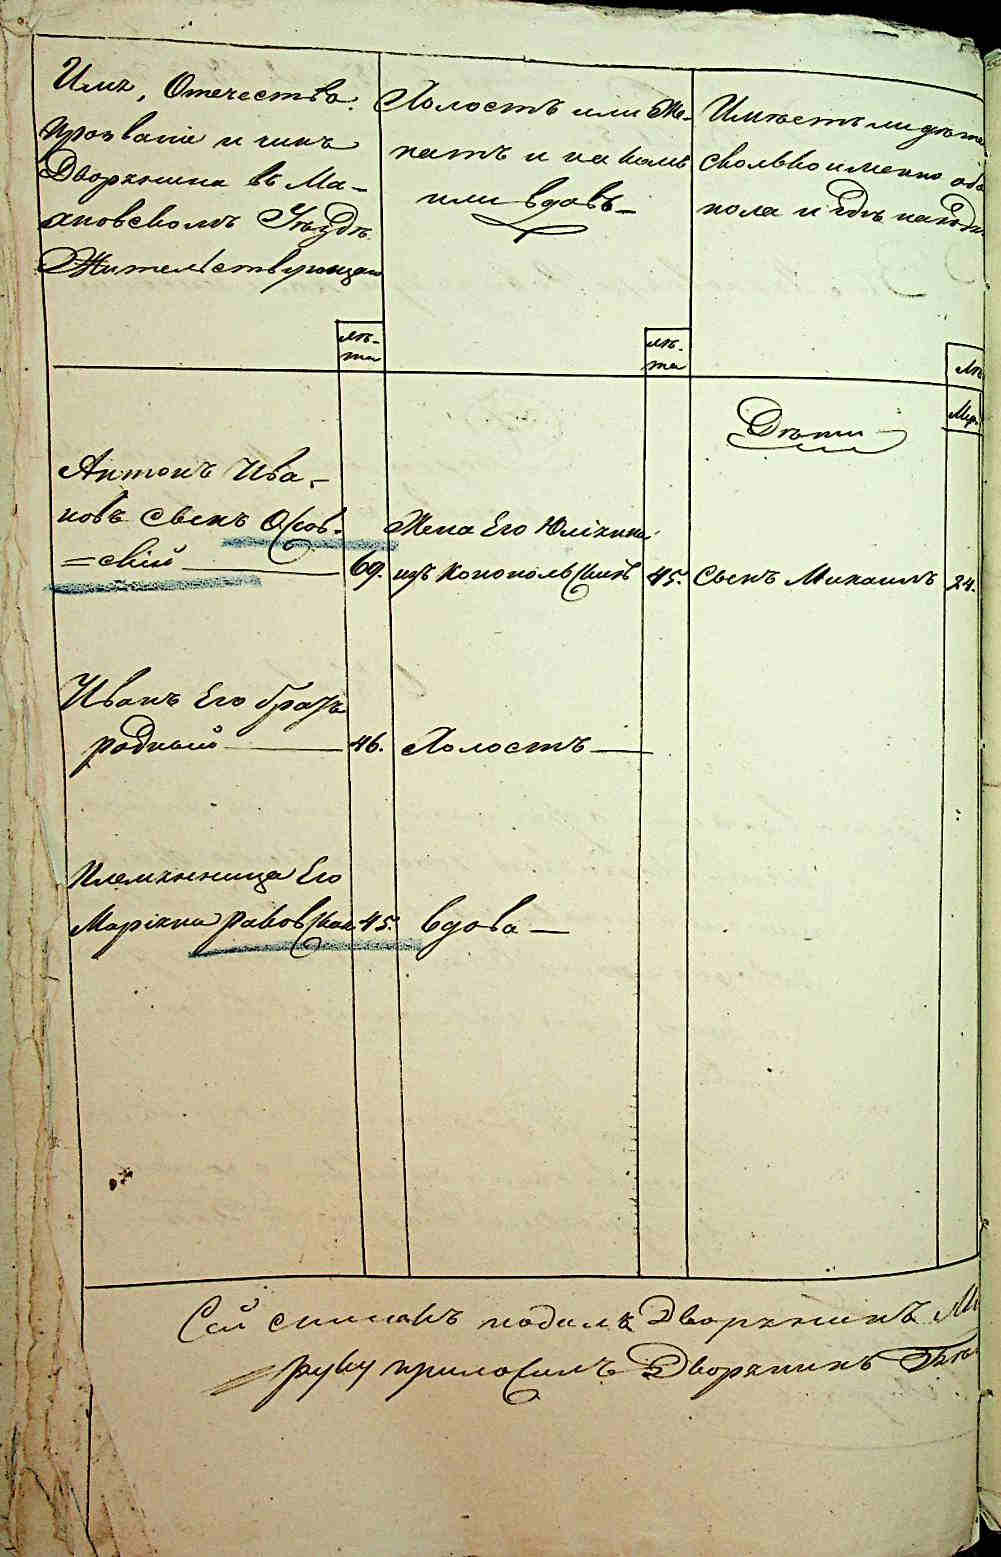 Имя, Отчество.
прозваніе и чинъ
Дворянина въ Ма-
хновскомъ Уѣздѣ
Жительствующаго
Холостъ или Же-
натъ и на комъ
или вдовъ
Имѣетъ ли дѣте
сколько именно обо
пола и гдѣ наход
лѣ-
та
лѣ-
та
Лѣ
Муж.
Дѣти
Антонъ Ива-
новъ сынъ Осов-
=скій 69.
Жена Его Юліянна
изъ Конопольскихъ 45.
Сынъ Михаилъ 24.
Иванъ Его братъ
родный 46.
Холостъ
Племянница Его
Маріяна Раковская 45.
вдова
Сей списокъ подалъ Дворянинъ
руку приложилъ Дворянинъ